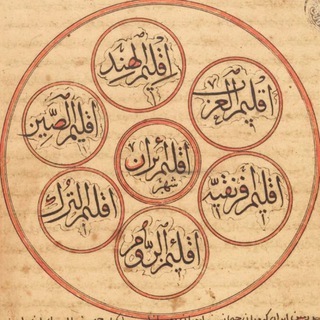 اقليم الهند
اقليم العرب
اقليم الصين
اقليم ايران
شهر
اقليم فريقيه
اقليم الترك
اقليم الروم